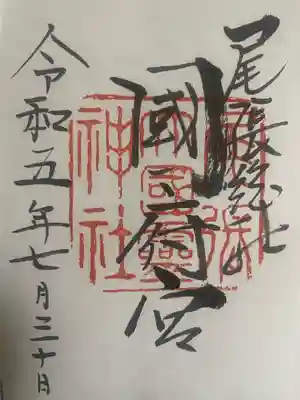 尾張総社
國府宮
令和五年七月三十日